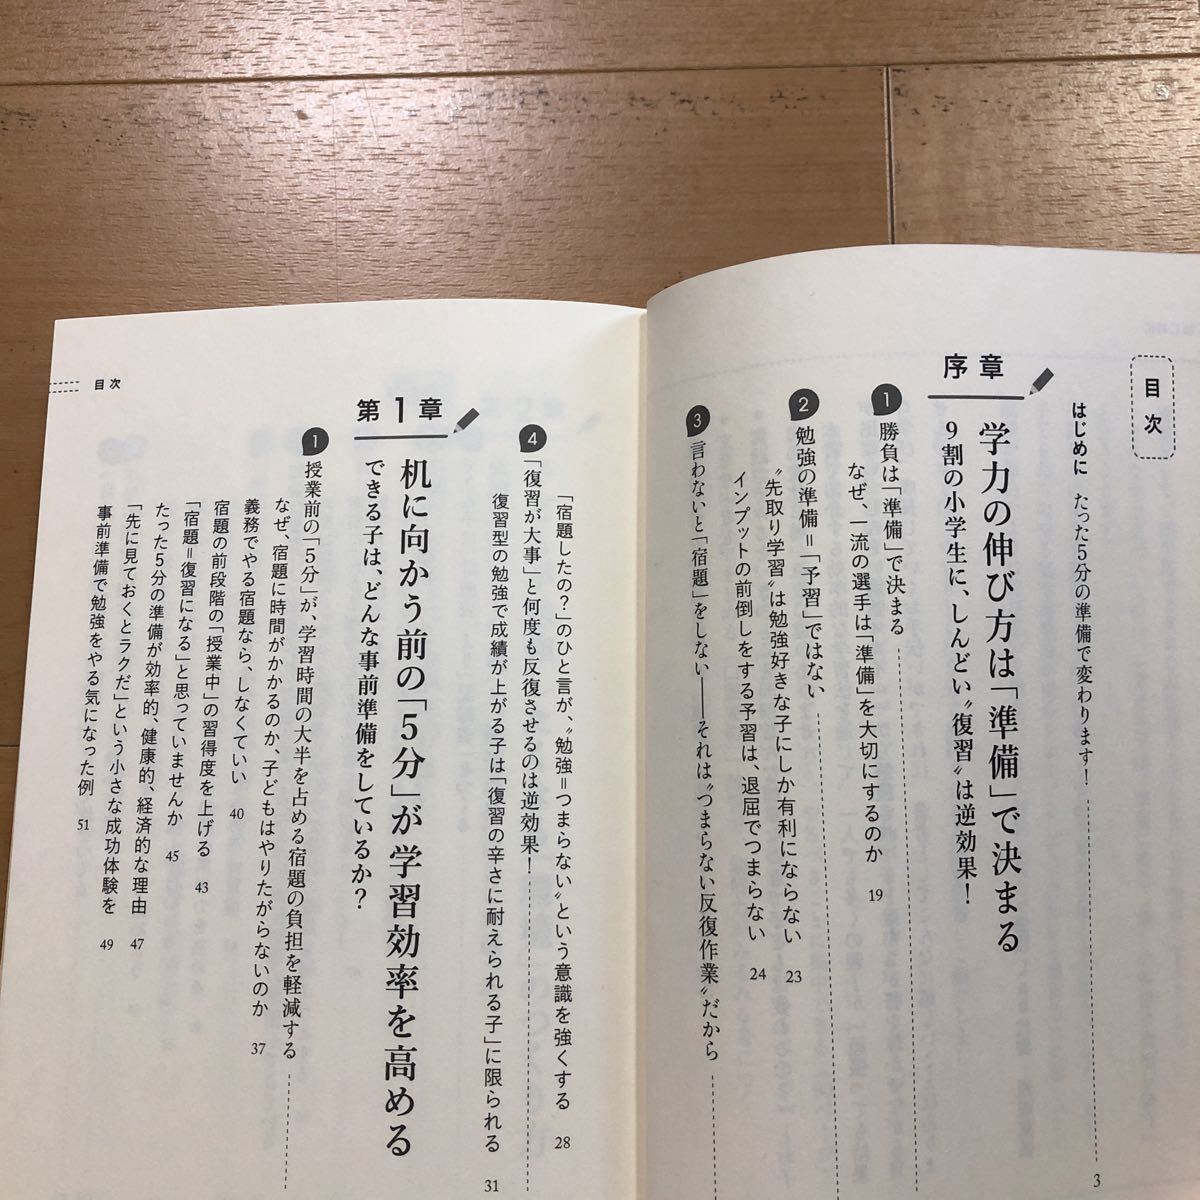 目次
はじめに　たった5分の準備で変わります！
3
序章
学力の伸び方は「準備」で決まる
9割の小学生に、しんどい〝復習〟は逆効果！
1 勝負は「準備」で決まる
なぜ、一流の選手は「準備」を大切にするのか 19
2 勉強の準備＝「予習」ではない
〝先取り学習〟は勉強好きな子にしか有利にならない 23
インプットの前倒しをする予習は、退屈でつまらない 24
3 言わないと「宿題」をしない――それは〝つまらない反復作業〟だから
「宿題したの？」のひと言が、〝勉強＝つまらない〟という意識を強くする 28
4 「復習が大事」と何度も反復させるのは逆効果！
復習型の勉強で成績が上がる子は「復習の辛さに耐えられる子」に限られる 31
第1章
机に向かう前の「5分」が学習効率を高める
できる子は、どんな事前準備をしているか？
1 授業前の「5分」が、学習時間の大半を占める宿題の負担を軽減する
なぜ、宿題に時間がかかるのか、子どもはやりたがらないのか 37
義務でやる宿題なら、しなくていい 40
宿題の前段階の「授業中」の習得度を上げる 43
「宿題＝復習になる」と思っていませんか 45
たった5分の準備が効率的、健康的、経済的な理由 47
「先に見ておくとラクだ」という小さな成功体験を 49
事前準備で勉強をやる気になった例 51
目次